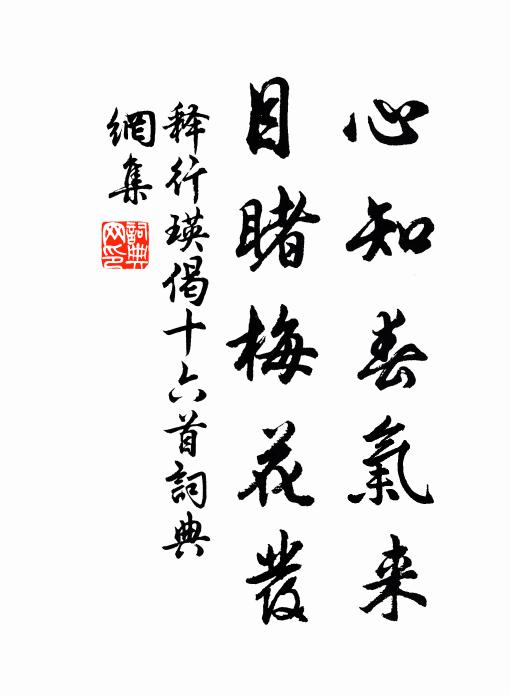 心知春氣来
目睹梅花發
释行瑛偈十六首詞典
網集
詞典
网印